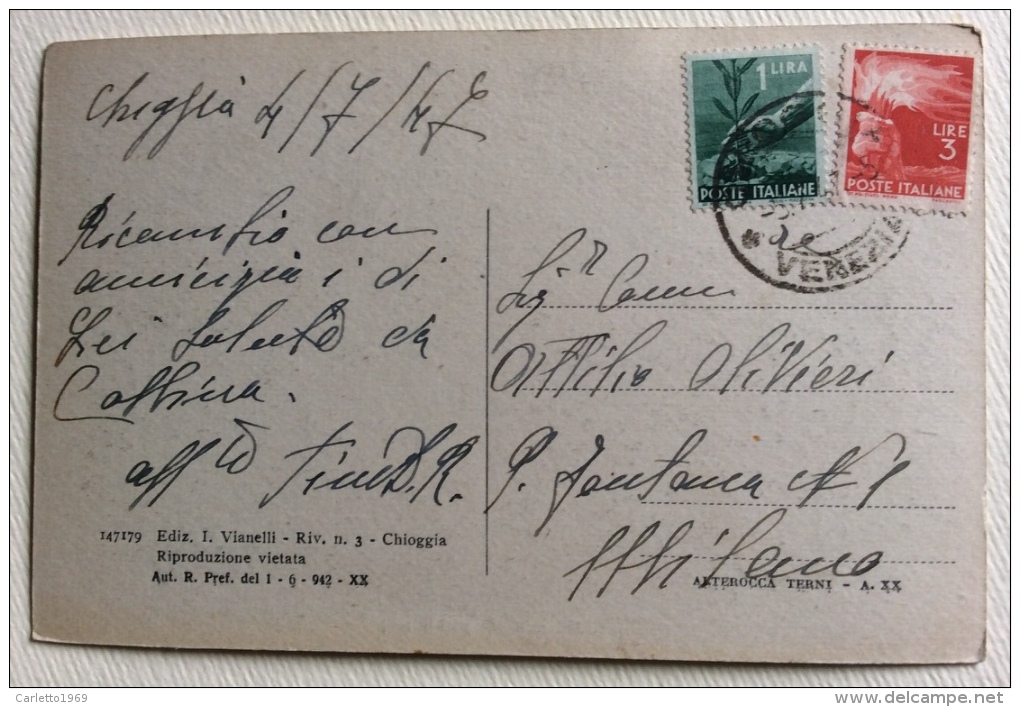 4/7/47
1 LIRA
POSTE ITALIANE
LIRE 3
POSTE ITALIANE
VENEZIA
Ricambio con
amicizia i di
Lei saluti da
aff.to
147179 Ediz. I. Vianelli - Riv. n. 3 - Chioggia
Riproduzione vietata
Aut. R. Pref. del 1 - 6 - 942 - XX
Sigr Comm
Attilio Olivieri
P. Fontana N 1
Milano
ALTEROCCA TERNI - A. XX
Carletto1969
delcampe.net